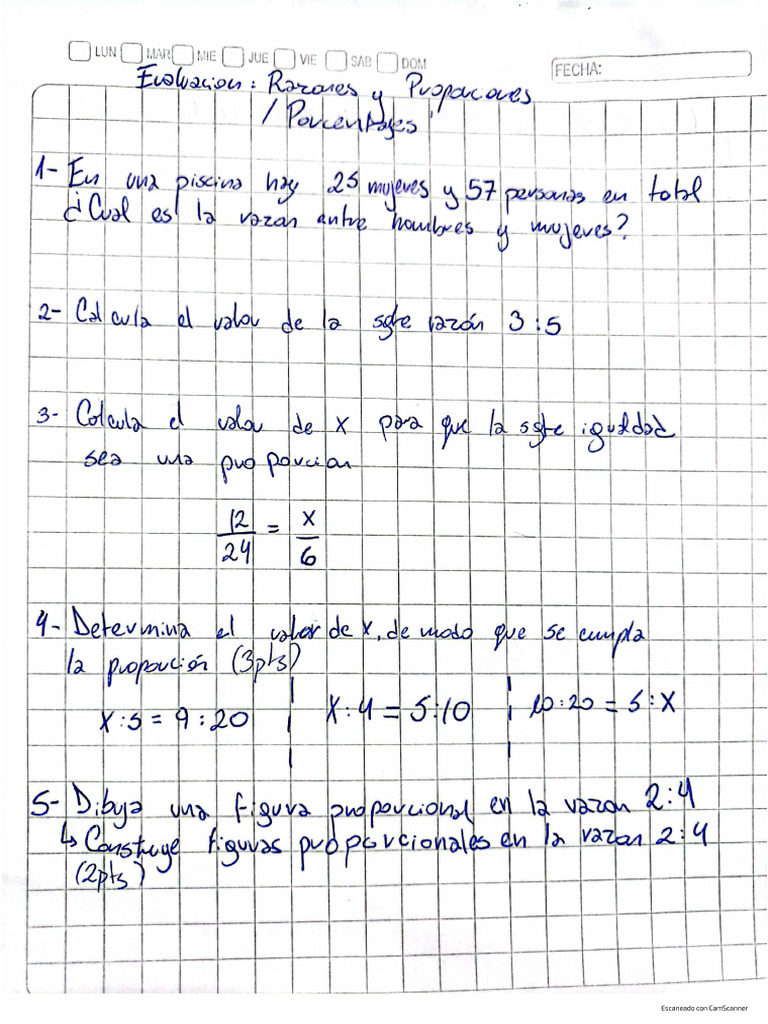 LUN MAR MIE JUE VIE SAB DOM
FECHA:
Evaluacion: Razones y Proporciones
/ Porcentajes
1- En una piscina hay 25 mujeres y 57 personas en total
¿Cual es la razon entre hombres y mujeres?
2- Calcula el valor de la sgte razón 3:5
3- Calcula el valor de x para que la sgte igualdad
sea una proporcion
12/24 = x/6
4- Determina el valor de x, de modo que se cumpla
la proporción (3pts)
x:5 = 9:20 | x:4 = 5:10 | 10:20 = 5:x
5- Dibuja una figura proporcional en la razon 2:4
↳ Construye figuras proporcionales en la razon 2:4
(2pts)
Escaneado con CamScanner